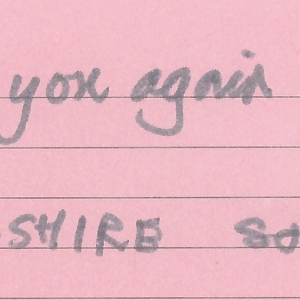 you again
SHIRE So